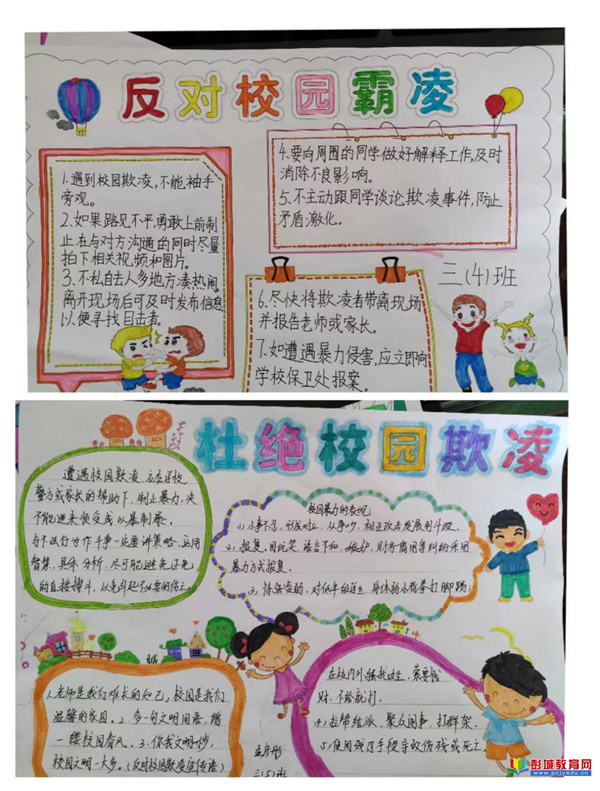 反对校园霸凌
1.遇到校园欺凌,不能袖手
旁观。
2.如果路见不平,勇敢上前制
止,在与对方沟通的同时尽量
拍下相关视频和图片。
3.不私自去人多地方凑热闹,
离开现场后可及时发布信息,
以便寻找目击者。
4.要向周围的同学做好解释工作,及时
消除不良影响。
5.不主动跟同学谈论欺凌事件,防止
矛盾激化。
三(4)班
6.尽快将欺凌者带离现场
并报告老师或家长。
7.如遭遇暴力侵害,应立即向
学校保卫处报案。
杜绝校园欺凌
遭遇校园欺凌,应在学校
警方或家长的帮助下,制止暴力,决
不能进来
以暴制暴。
与不法行为作斗争一定要讲策略,运用
智慧,具体分析,尽可能避免正免
的直接搏斗,以免引起不必要的伤亡。
校园暴力的表现
暴力方式报复。
拳打脚踢;
在校内外
索要钱
财,不给就打。
4、拉帮结派,聚众闹事,打群架,
5、使用
手段导致伤残或死亡。
1.老师是我们成长的知己,校园是我们
温馨的家园。2.多一句文明用语,
一缕校园春风。3.你我文明一小步,
校园文明一大步。(反对校园欺凌宣传语)
三(5)班
彭城教育网
www.pcjyedu.cn